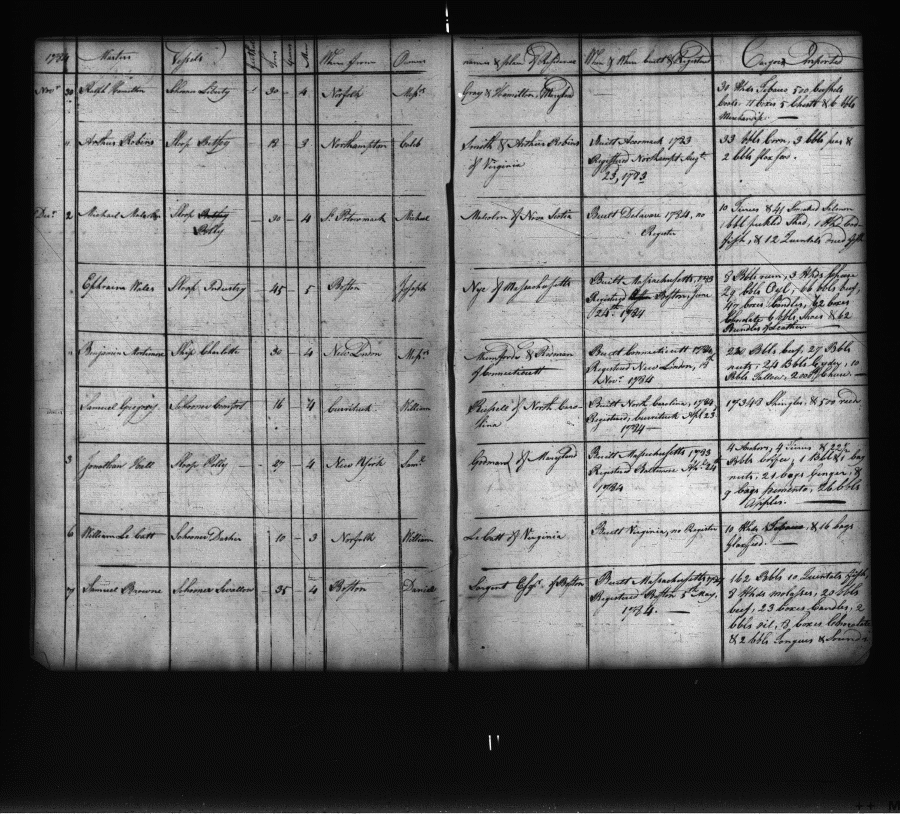 1784 Masters Vessels Tons Guns Men Where From Owners names & places of Residence Where & When built & Registered Cargoes Imported
Novr 30 Ralph Hamilton 30 4 Norfolk Messrs Gray & Hamilton, Maryland 30 Hhds Tobacco 500 bushels
Coals. 11 boxes 5 Chests & 6 bbls
Merchandize.
Arthur Robins Sloop Betsey 12 3 Northampton Caleb Smith & Arthur Robins Built Accomack 1783 33 bbls Corn, 3 bbls peas &
of Virginia Registered Northampt Augt 2 bbls flaxseed.
23, 1783
Decr 2 Michael Sloop 30 4 St Potowmack Michael Malcolm of Nova Scotia Built Delaware 1784, no 10 Tierces & 41 Smoked Salmon
Betsy Register 1 bbl pickled Shad, 1 Hhd Cod
fish, & 12 Quintals dried fish
Ephraim Wales Sloop Industry 45 5 Boston Joseph Nye of Massachusetts Built Massachusetts, 1783 8 Bbls rum, 3 Hhds
Registered Boston, June 29 bbls Oyl, 66 bbls beef,
24th 1784 boxes Candles, 62 boxes
Chocolate 6 bbls Shoes & 62
Bundles of Leather
Benjamin Mortimore Ship Charlotte 30 4 New London Messrs Mumfords & Rodman Built Connecticutt 1784, 230 Bbls beef, 27 Bbls
of Connecticutt Registered New London, nuts, 24 Bbls Cyder, 10
Novr 1784 Bbls Tallow, 2000
Samuel Gregory Schooner Comfort 16 4 Currituck William Russell of North Caro- Built North Carolina, 1784 17340 Shingles, & 500 reeds
lina Registered, Currituck Apl 23d
1784
3 Jonathan Hall Sloop Polly 27 4 New York Saml Godman of Maryland Built Massachusetts 1783 4 Anchors, 4 Tierces & 225
Registered Baltimore Apl 24th Bbls Coffee, 1 Bbl & 1 bag
1784 nuts, 21 bags Ginger, &
9 bags pimento, 26 bbls
Apples.
6 William Le Catt Schooner Dasher 10 3 Norfolk William Le Catt of Virginia Built Virginia, no Register 10 Hhds Tobacco, & 16 bags
flaxseed.
7 Samuel Browne Schooner Swallow 35 4 Boston Daniel Sargent Esqr. of Boston Built Massachusetts 162 Bbls 10 Quintals fish
Registered Boston 5th May, 8 Hhds molasses, 20 bbls
1784. beef, 23 boxes Candles, 2
bbls oil, 3 boxes Chocolate
& 2 bbls Tongues & Sounds